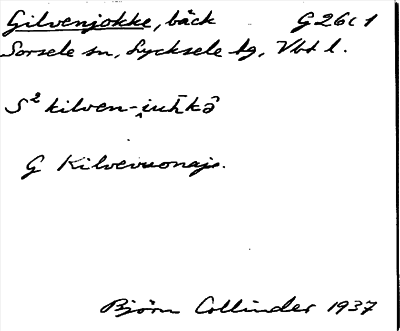 Gilvenjokke, bäck G 26 c 1
Sorsele sn, Lycksele tg, Vbt l.
S² kilven-
G Kilvevuonajs.
Björn Collinder 1937